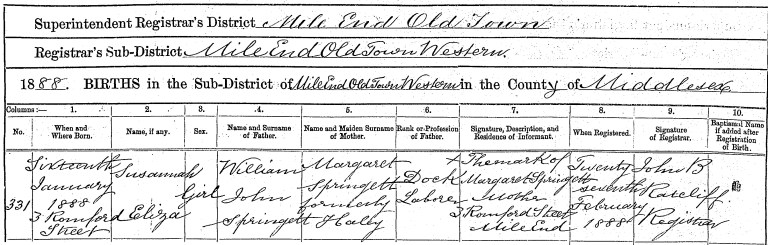 Superintendent Registrar's District Mile End Old Town
Registrar's Sub-District Mile End Old Town Western.
1888. BIRTHS in the Sub-District of Mile End Old Town Western in the County of Middlesex
Columns :— 1. 2. 3. 4. 5. 6. 7. 8. 9. 10.
No. When and Where Born. Name, if any. Sex. Name and Surname of Father. Name and Maiden Surname of Mother. Rank or Profession of Father. Signature, Description, and Residence of Informant. When Registered. Signature of Registrar. Baptismal Name if added after Registration of Birth.
331 Sixteenth January 1888 3 Romford Street
Susannah Eliza
Girl
William John Springett
Margaret Springett formerly Haley
Dock Laborer
X The mark of Margaret Springett Mother 3 Romford Street Mile End
Twenty seventh February 1888
John B Ratcliff Registrar